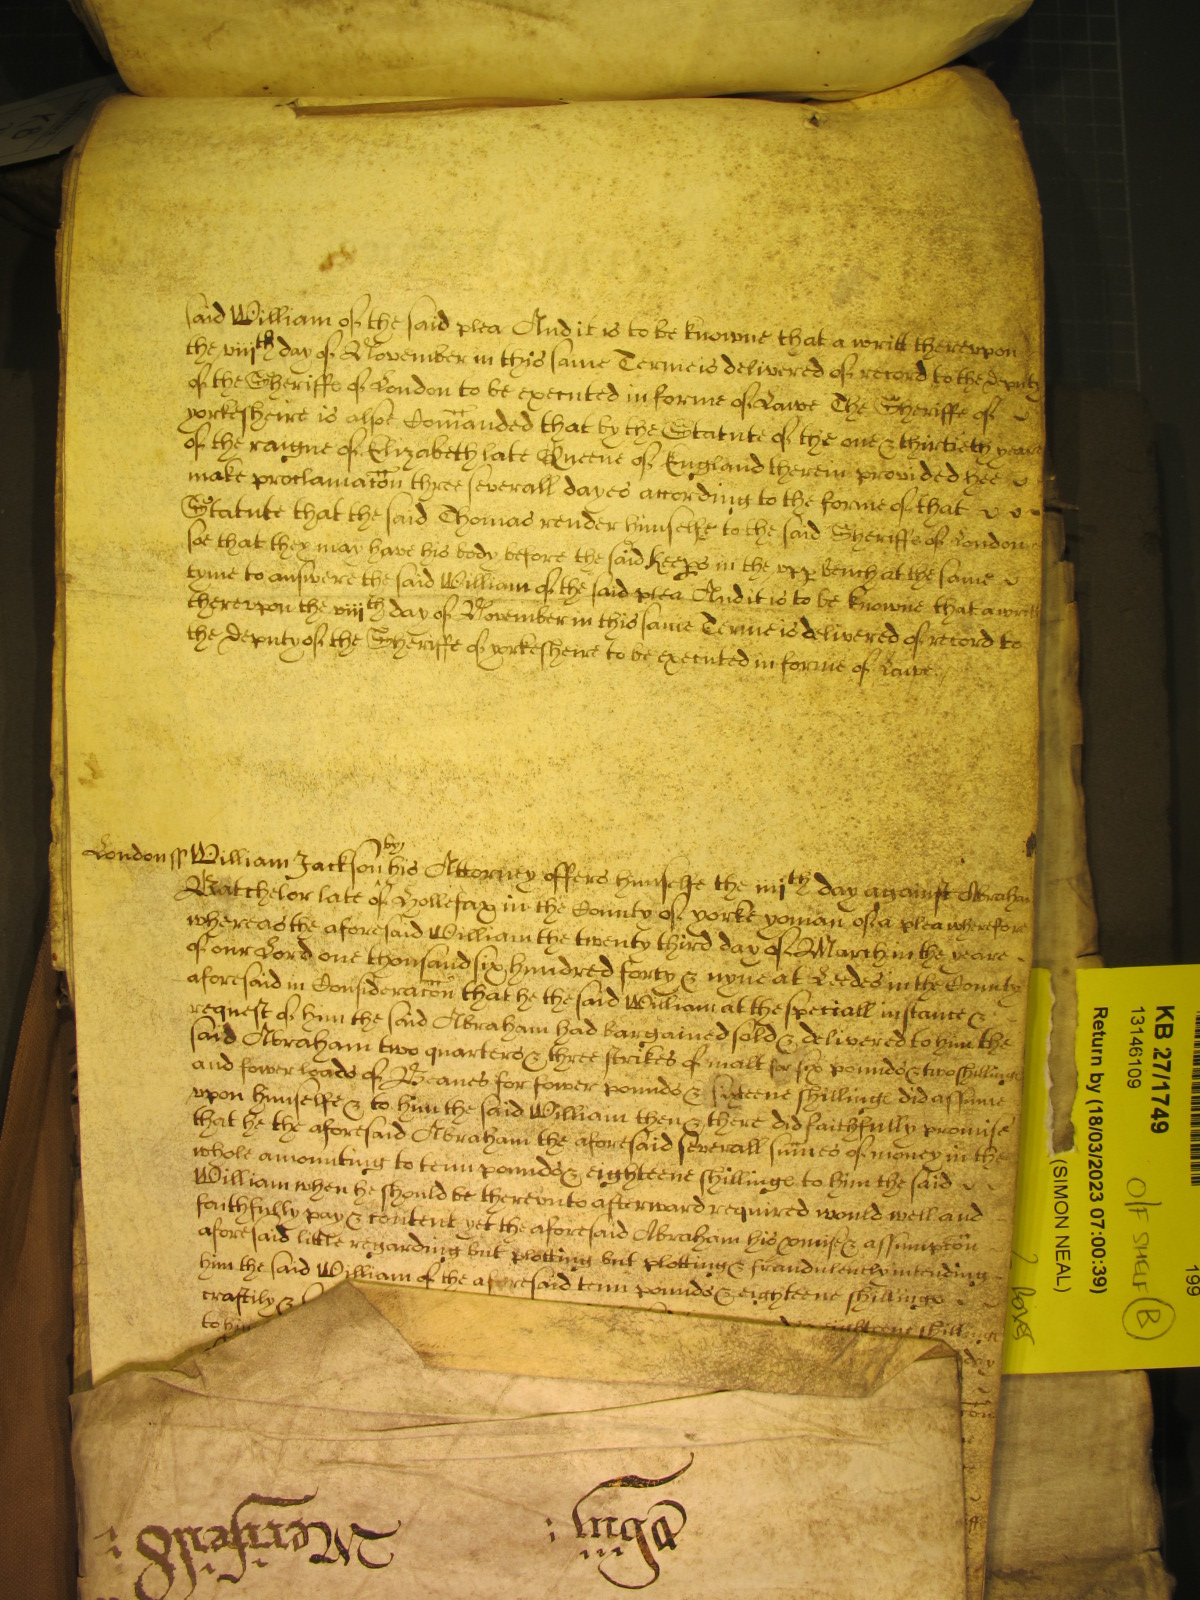 said William of the said plea And it is to be knowne that a writt therevpon
the viijth day of November in this same Terme is delivered of record to the deputy
of the Sheriffs of London to be executed in forme of Lawe The Sheriffe of
yorkesheire is alsoe Comanded that by the Statute of the one & thirtieth yeare
of the raigne of Elizabeth late Queene of England therein provided hee
make proclamacōn three severall dayes according to the forme of that
Statute that the said Thomas render himselfe to the said Sheriffs of London
soe that they may have his body before the said Keeps in the vpp bench at the same
tyme to answere the said William of the said plea And it is to be knowne that a writt
therevpon the viijth day of November in this same Terme is delivered of record to
the deputy of the Sheriffe of yorkesheire to be executed in forme of Lawe.
London ss William Jackson by his Attorney offers himselfe the iiijth day against Abraham
Batchelor late of Hollefax in the County of yorke yoman of a plea wherefore
whereas the aforesaid William the twenty third day of March in the yeare
of our Lord one thousand six hundred forty & nyne at Leedes in the County
aforesaid in Consideracōn that he the said William at the speciall instance &
request of him the said Abraham had bargained sold & delivered to him the
said Abraham two quarters & three strikes of malt for six pounds & two shillings
and fower loads of Beanes for fower pounds & sixteene shillings did assume
vpon himselfe & to him the said William then & there did faithfully promise
that he the aforesaid Abraham the aforesaid severall sum̄es of money in the
whole amounting to tenn pounds & eighteene shillings to him the said
William when he should be therevnto afterward required would well and
faithfully pay & content yet the aforesaid Abraham his pmise & assumpcōn
aforesaid little regarding but plotting but plotting & fraudulently intending
him the said William of the aforesaid tenn pounds & eighteene shillings
craftily &
to him eighteene shillings
day
KB 27/1749
13146109
Return by (18/03/2023 07:00:39)
(SIMON NEAL)
199
O/F SHELF B
7 boxes